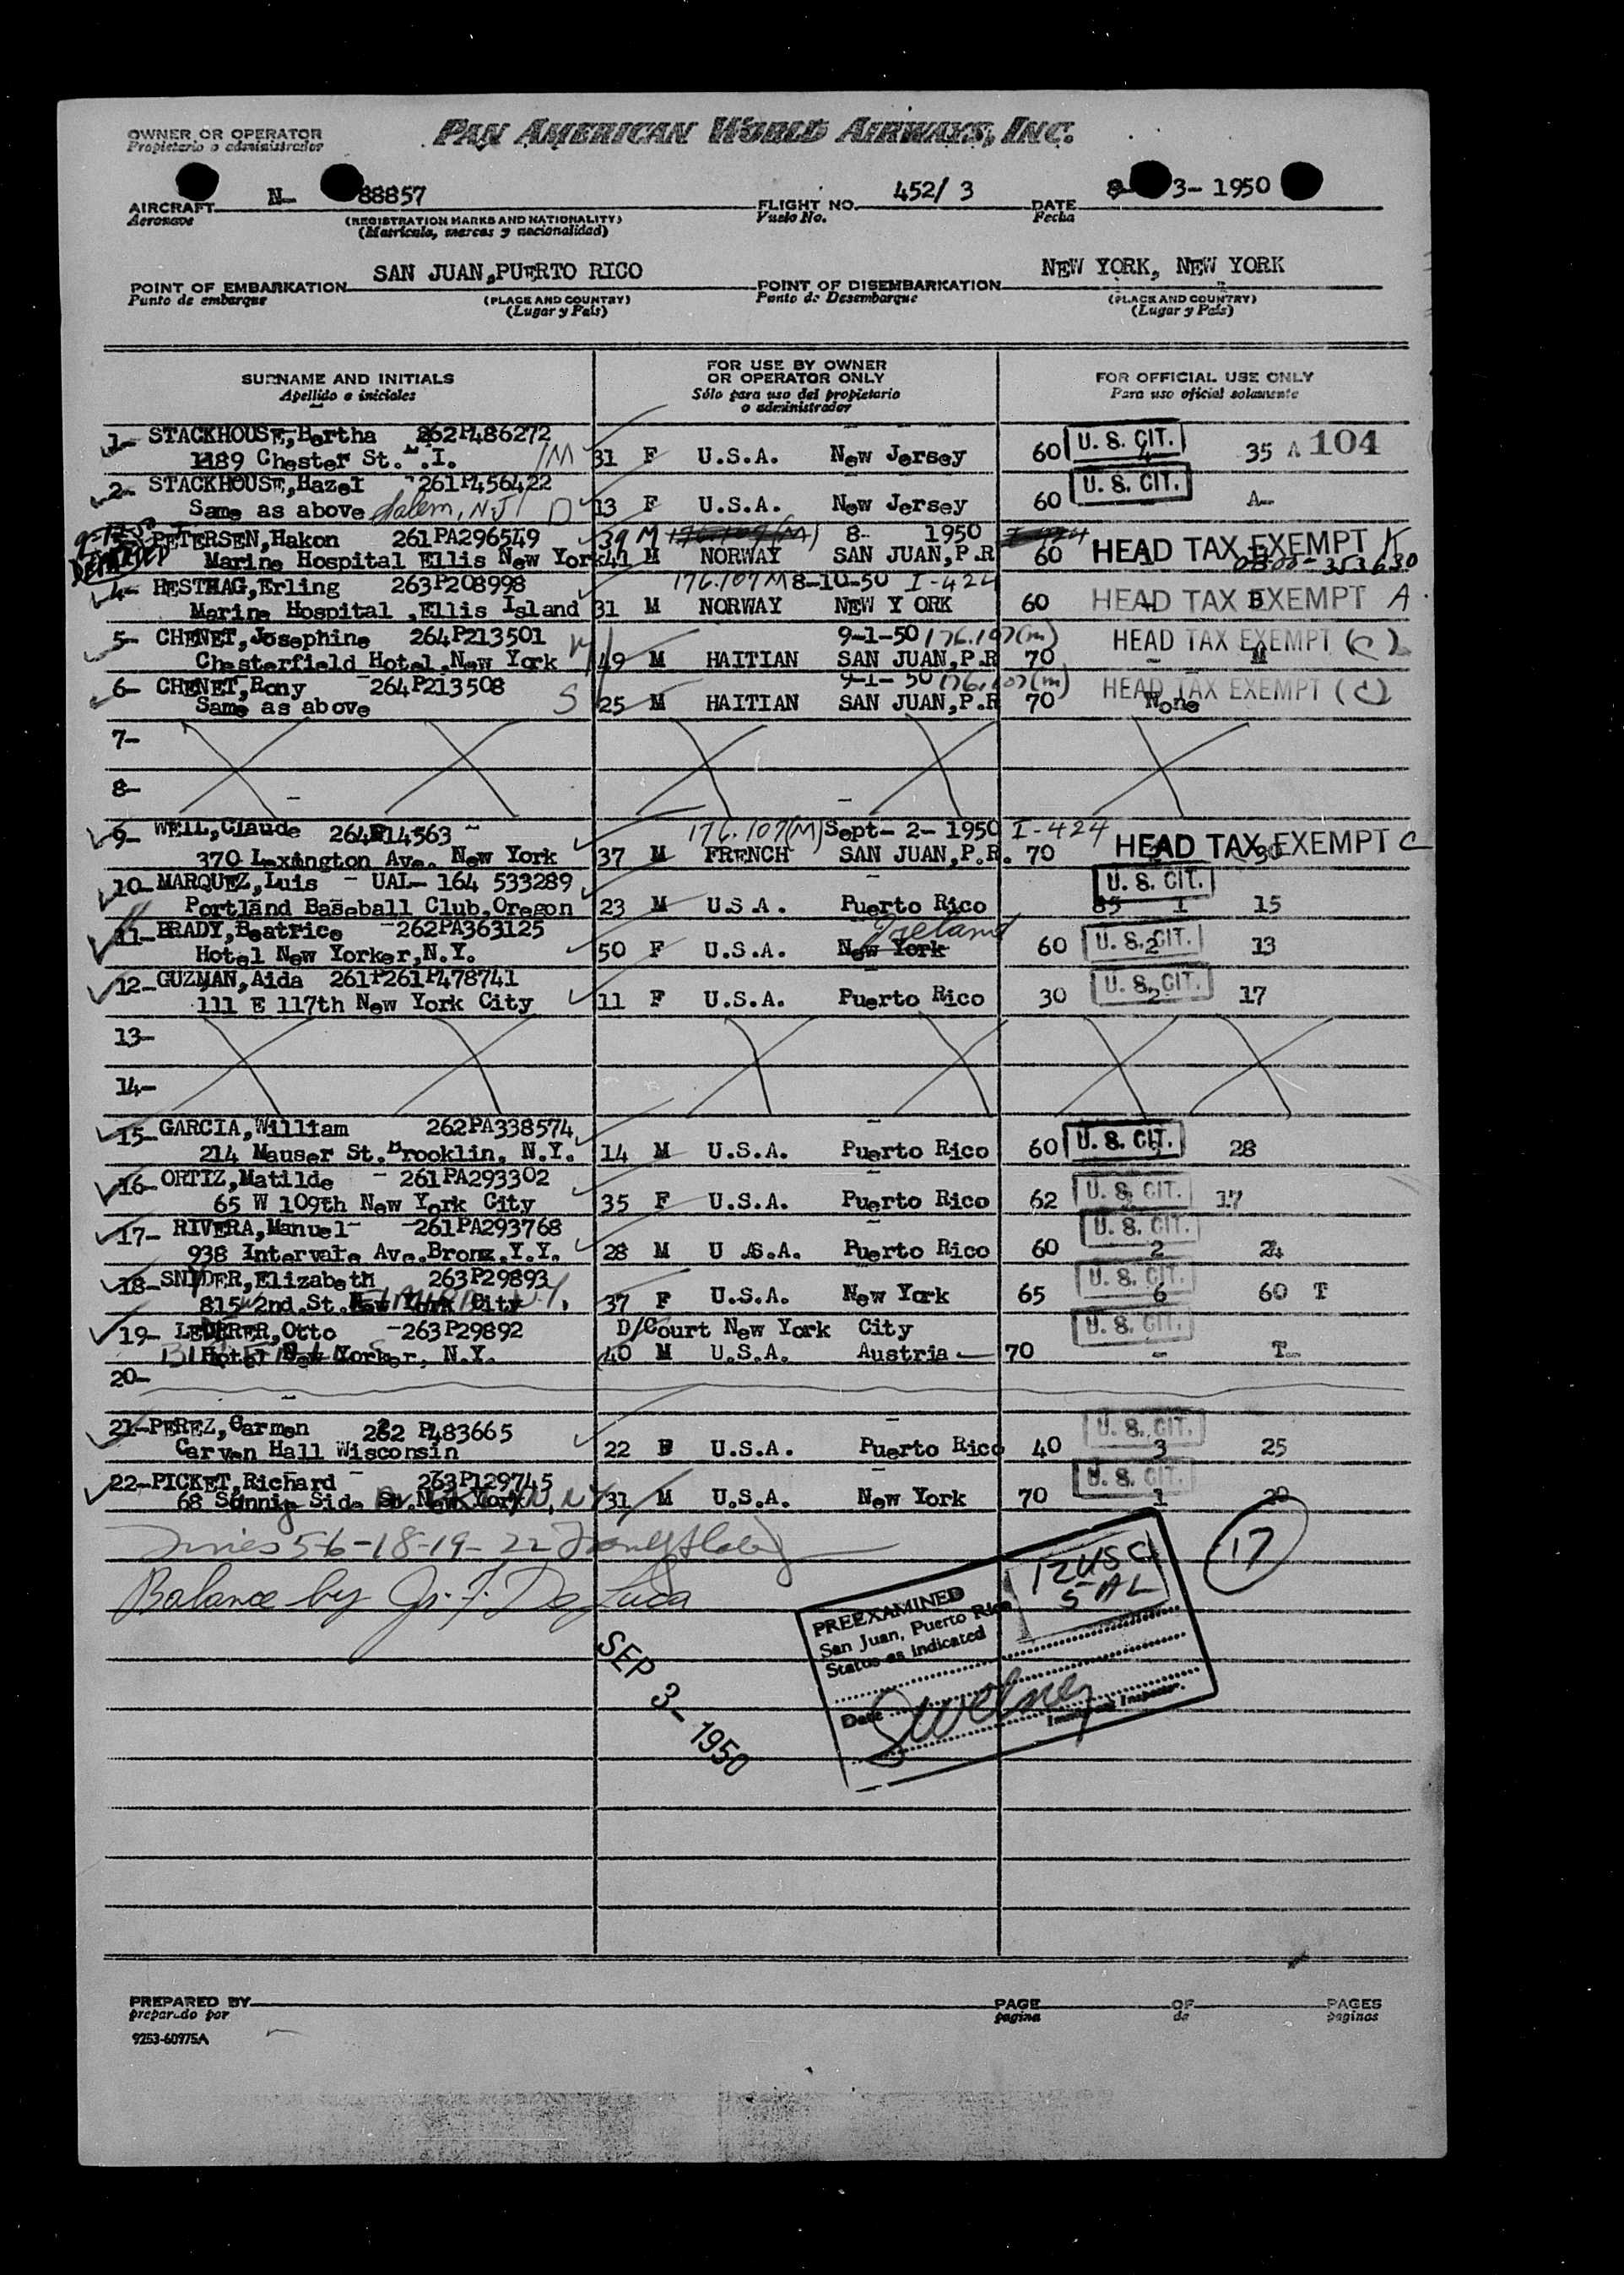 OWNER OR OPERATOR
Propietario o administrador
PAN AMERICAN WORLD AIRWAYS, INC.
AIRCRAFT N- 88857 FLIGHT NO. 452/ 3 DATE 3- 1950
Aeronave (REGISTRATION MARKS AND NATIONALITY) Vuelo No. Fecha
(Matricula, marcas y nacionalidad)
POINT OF EMBARKATION SAN JUAN,PUERTO RICO POINT OF DISEMBARKATION NEW YORK, NEW YORK
Punto de embarque (PLACE AND COUNTRY) Punto de Desembarque (PLACE AND COUNTRY)
(Lugar y País) (Lugar y País)
SURNAME AND INITIALS FOR USE BY OWNER OR OPERATOR ONLY FOR OFFICIAL USE ONLY
Apellido e iniciales Sólo para uso del propietario o administrador Para uso oficial solamente
1- STACKHOUSE,Bertha 262P486272
1189 Chester St. .I. M 31 F U.S.A. New Jersey 60 U. S. CIT. 4 35 A 104
2- STACKHOUSE,Hazel 261P456422
Same as above Salem, NJ D 13 F U.S.A. New Jersey 60 U. S. CIT. A-
PETERSEN,Hakon 261PA296549 39 M 8- 1950 I-424
Marine Hospital Ellis New York 41 M NORWAY SAN JUAN,P.R 60 HEAD TAX EXEMPT
4- HESTHAG,Erling 263P208998 176.107M 8-10-50 I-424
Marine Hospital ,Ellis Island 31 M NORWAY NEW Y ORK 60 HEAD TAX EXEMPT A
5- CHENET,Josephine 264P213501 9-1-50 176.107(m)
Chesterfield Hotel,New York 49 M HAITIAN SAN JUAN,P.R 70 HEAD TAX EXEMPT (C)
6- CHENET,Rony 264P213508 9-1- 50 176.107(m)
Same as above S 25 M HAITIAN SAN JUAN,P.R 70 HEAD TAX EXEMPT (C) None
7-
8-
9- WEIL,Claude 176.107(M) Sept- 2- 1950 I-424
370 Lexington Ave. New York 37 M FRENCH SAN JUAN,P.R. 70 HEAD TAX EXEMPT C
10- MARQUEZ,Luis - UAL- 164 533289
Portland Baseball Club,Oregon 23 M U.S.A. Puerto Rico 85 U. S. CIT. 1 15
11- BRADY,Beatrice 262PA363125 Ireland
Hotel New Yorker,N.Y. 50 F U.S.A. New York 60 U. S. CIT. 2 13
12- GUZMAN,Aida 261P261P478741
111 E 117th New York City 11 F U.S.A. Puerto Rico 30 U. S. CIT. 2 17
13-
14-
15- GARCIA,William 262PA338574
214 Mauser St.Brooklin, N.Y. 14 M U.S.A. Puerto Rico 60 U. S. CIT. 28
16- ORTIZ,Matilde - 261PA293302
65 W 109th New York City 35 F U.S.A. Puerto Rico 62 U. S. CIT. 17
17- RIVERA,Manuel- -261PA293768
938 Intervale Ave.Bronx,Y.Y. 28 M U .S.A. Puerto Rico 60 U. S. CIT. 2 24
18- SNYDER,Elizabeth 263P29893
815 2nd.St. New York City 37 F U.S.A. New York 65 U. S. CIT. 6 60 T
19- LEDERER,Otto -263P29892 D/Court New York City
Hotel New Yorker, N.Y. 40 M U.S.A. Austria 70 U. S. CIT. - T-
20-
21- PEREZ,Carmen 262 P483665
Carven Hall Wisconsin 22 F U.S.A. Puerto Rico 40 U. S. CIT. 3 25
22- PICKET,Richard 263P129745
68 Sunnig Side New York 31 M U.S.A. New York 70 U. S. CIT. 1 20
5-6-18-19-22
Balance by
PREEXAMINED
San Juan, Puerto Rico
Status as indicated
12 USC
5 AL
17
Date
Immigrant Inspector.
SEP 3- 1950
PREPARED BY PAGE OF PAGES
preparado por pagina de paginas
9253-60975A